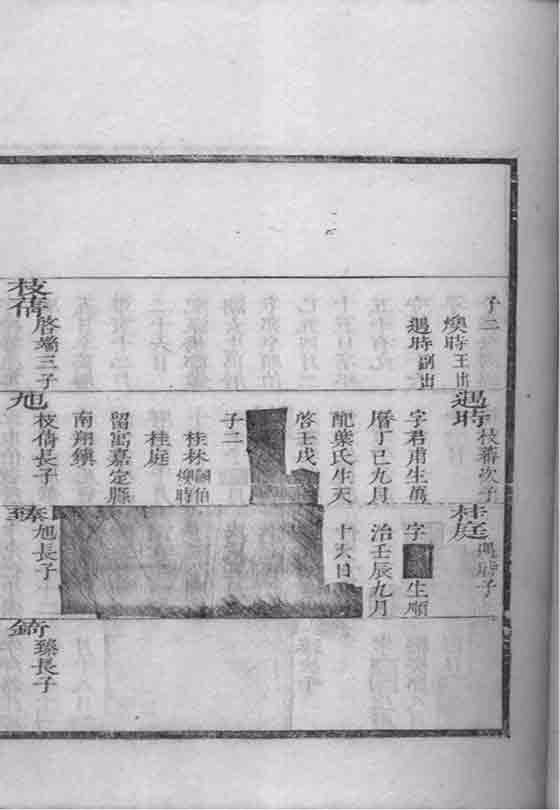 子二
燠時王出
遇時劉出
枝蒨
啓端三子
遇時
枝蕃次子
字君甫生萬
曆丁巳九月
配葉氏生天
啓壬戌
子二
桂林
桂庭
留寓嘉定縣
南翔鎮
旭
枝蒨長子
桂庭
遇時子
字 生順
治壬辰九月
十六日
臻
旭長子
錡
臻長子